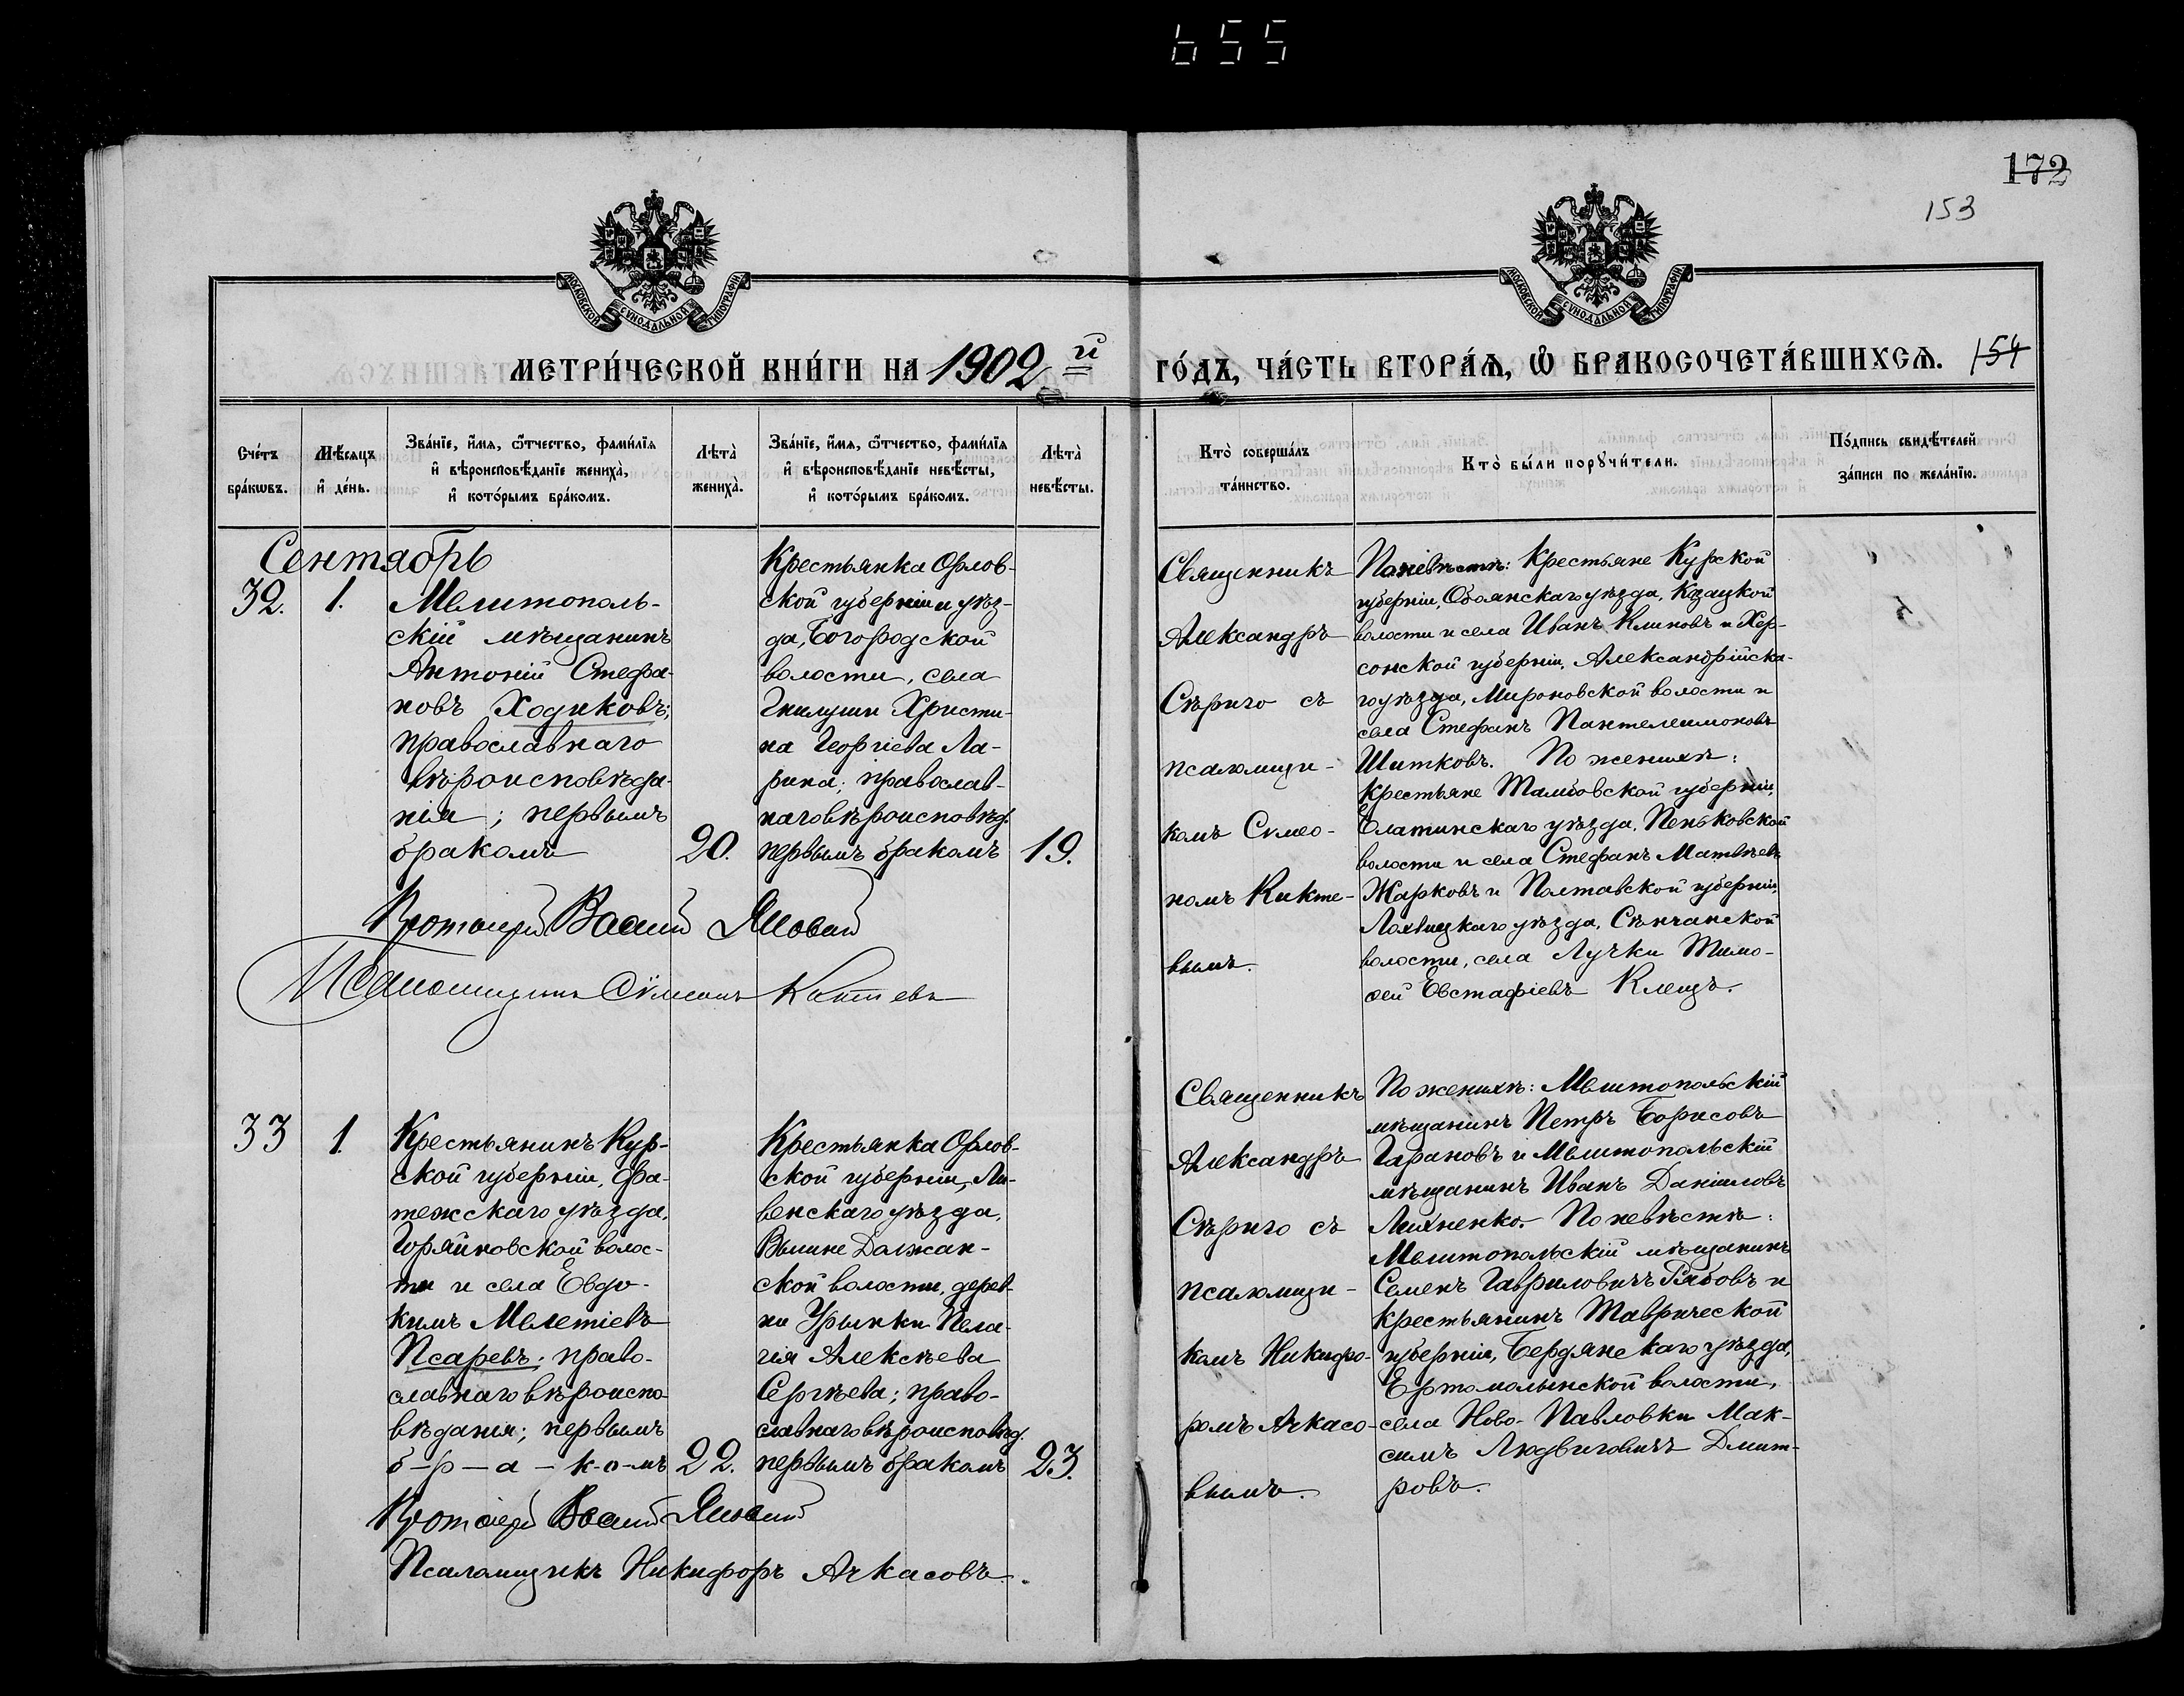 655
172
153
МОСКОВСКОЙ СѴНОДАЛЬНОЙ ТИПОГРАФІИ
МОСКОВСКОЙ СѴНОДАЛЬНОЙ ТИПОГРАФІИ
МЕТРИ́ЧЕСКОЙ КНИ́ГИ НА 1902 й
ГО́ДЪ, ЧА́СТЬ ВТОРА́Ѧ, Ѽ БРАКОСОЧЕТА́ВШИХСѦ. 154
Сче́тъ бра́кѡвъ.
Мѣ́сяцъ и҆ де́нь.
Зва́нїе, и҆́мѧ, ѻ҆́тчество, фами́лїѧ и҆ вѣроисповѣ́данїе жениха̀, и҆ кото́рымъ бра́комъ.
Лѣта̀ жениха̀.
Зва́нїе, и҆́мѧ, ѻ҆́тчество, фами́лїѧ и҆ вѣроисповѣ́данїе невѣ́сты, и҆ кото́рымъ бра́комъ.
Лѣта̀ невѣ́сты.
Кто̀ соверша́лъ та́инство.
Кто̀ бы́ли порꙋчи́тели.
По́дпись свидѣ́телей за́писи по жела́нїю.
Сентябрь
32.
1.
Мелитополь-
скій мѣщанинъ
Антоній Стефа-
новъ Ходиковъ;
православнаго
вѣроисповѣда-
нія; первымъ
бракомъ
20.
Крестьянка Орлов-
ской губерніи уѣз-
да, Богородской
волости, села
Гнилуши Христи-
на Георгіева Ла-
рина; православ-
наго вѣроисповѣд.
первымъ бракомъ
19.
Священникъ
Александръ
Сѣриго съ
псаломщи-
комъ Симео-
номъ Кикте-
вымъ.
По невѣстѣ: Крестьяне Курской
губерніи, Обоянскаго уѣзда, Казацкой
волости и села Иванъ Климовъ и Хер-
сонской губерніи, Александрійска-
го уѣзда, Мироновской волости и
села Стефанъ Пантелеимоновъ
Шитковъ. По женихѣ:
Крестьяне Тамбовской губерніи,
Елатинскаго уѣзда, Пеньковской
волости и села Стефанъ Матвѣевъ
Жарковъ и Полтавской губерніи,
Лохвицкаго уѣзда, Сѣнчанской
волости, села Лучки Тимо-
ѳей Евстафіевъ Клещъ.
Протоіерей Василій Яновскій
Псаломщикъ Сѵмеонъ Киктевъ
33
1.
Крестьянинъ Кур-
ской губерніи, Фа-
тежскаго уѣзда,
Горяйновской волос-
ти и села Евдо-
кимъ Мелетіевъ
Псаревъ; право-
славнаго вѣроиспо-
вѣданія; первымъ
б-р-а-к-о-мъ
22.
Крестьянка Орлов-
ской губерніи, Ли-
венскаго уѣзда,
Вышне Должан-
ской волости, дерев-
ни Урынки Пела-
гія Алексѣева
Сергѣева; право-
славнаго вѣроисповѣд.
первымъ бракомъ
23.
Священникъ
Александръ
Сѣриго съ
псаломщи-
комъ Никифо-
ромъ Ачкасо-
вымъ.
По женихѣ: Мелитопольскій
мѣщанинъ Петръ Борисовъ
Гарановъ и Мелитопольскій
мѣщанинъ Иванъ Даніиловъ
Михненко. По невѣстѣ:
Мелитопольскій мѣщанинъ
Семенъ Гавриловичъ Рябовъ и
крестьянинъ Таврической
губерніи, Бердянскаго уѣзда,
волости,
села Ново-Павловки Мак-
симъ Людвиговичъ Дмит-
ровъ.
Протоіерей Василій Яновскій
Псаломщикъ Никифоръ Ачкасовъ.